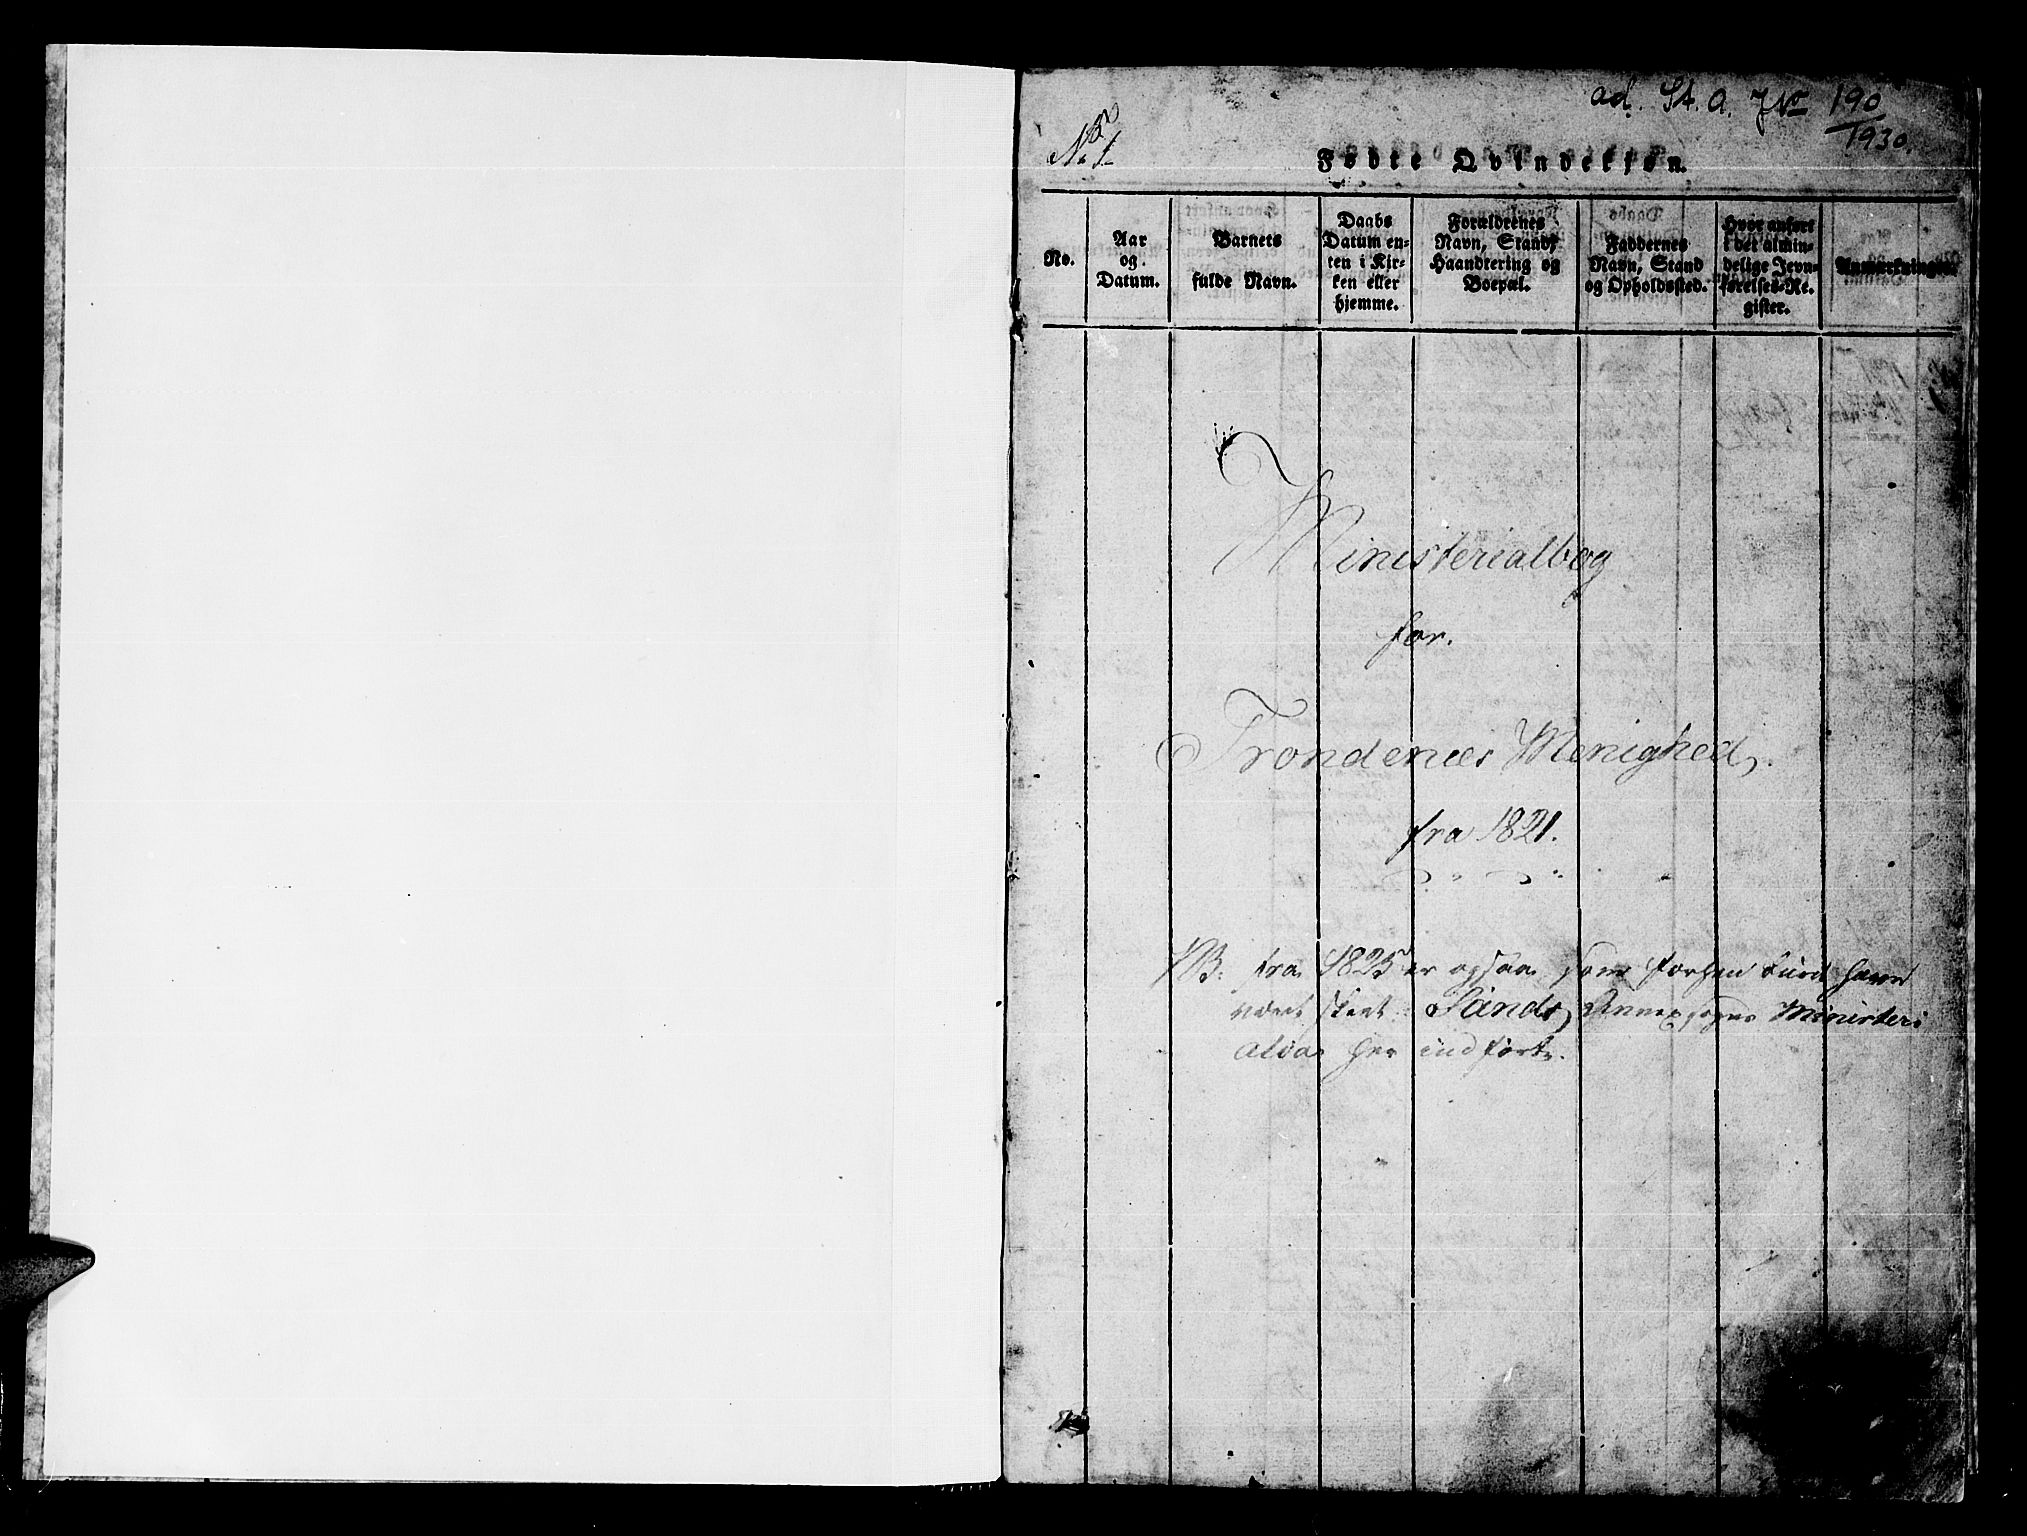 ad. St. a. JNo 190/1930.
No. 1
Fødte Qvindekjøn.
No.
Aar
og
Datum.
Barnets
fulde Navn.
Daabs
Datum en-
ten i Kir-
ken eller
hjemme.
Forældrenes
Navn, Stand,
Haandtering og
Boepæl.
Faddernes
Navn, Stand
og Opholdssted.
Hvor anført
i det almin-
delige Jevn-
førelses-Re-
gister.
Anmærkninger.
Ministerialbog
for.
Trondenæs Menighed,
fra 1821.
NB. fra 1825 er ogsaa som forhen burde have
været skeet Sands Annexsogns Ministeri
alia her indførte.